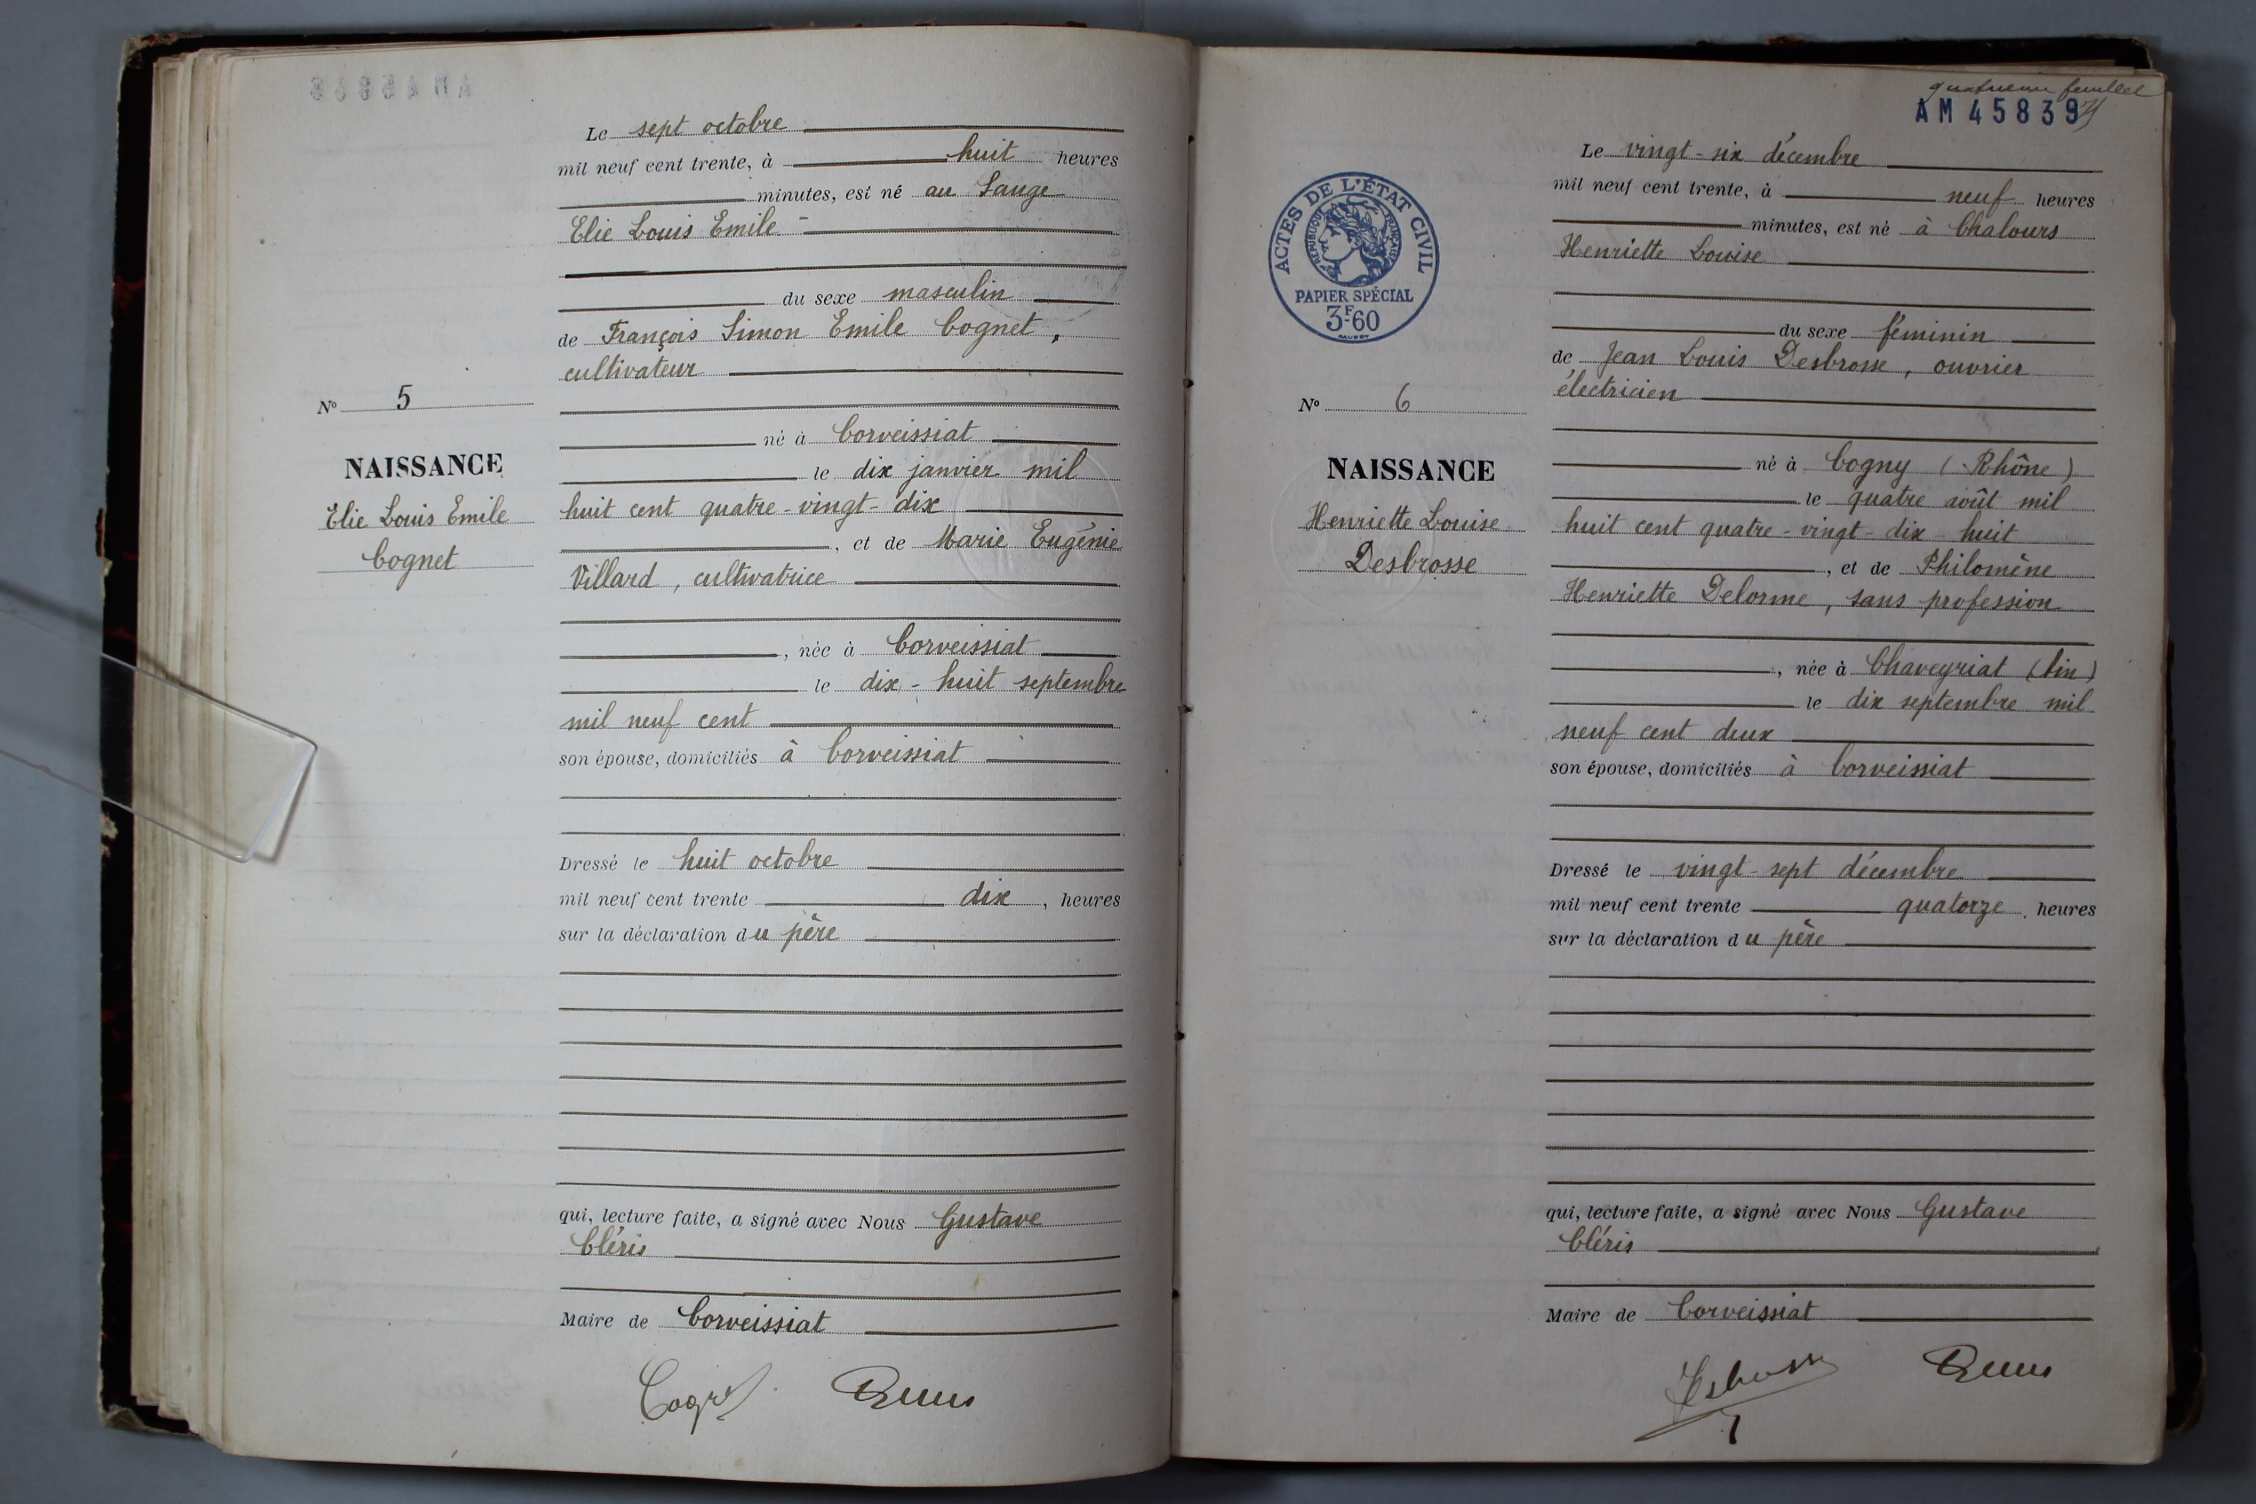 Le sept octobre
mil neuf cent trente, à huit heures
minutes, est né au Sauge
Elie Louis Emile
du sexe masculin
de François Simon Emile Cognet,
cultivateur
né à Corveissiat
le dix janvier mil
huit cent quatre-vingt-dix
, et de Marie Eugénie
Villard, cultivatrice
, née à Corveissiat
le dix-huit septembre
mil neuf cent
son épouse, domiciliés à Corveissiat
Dressé le huit octobre
mil neuf cent trente dix, heures
sur la déclaration du père
qui, lecture faite, a signé avec Nous Gustave
Cléris
Maire de Corveissiat
N° 5
NAISSANCE
Elie Louis Emile
Cognet
quatrième feuillet
AM 45839
Le vingt-six décembre
mil neuf cent trente, à neuf heures
minutes, est né à Chalours
Henriette Louise
du sexe féminin
de Jean Louis Desbrosse, ouvrier
électricien
né à Cogny (Rhône)
le quatre août mil
huit cent quatre-vingt-dix-huit
, et de Philomène
Henriette Delorme, sans profession
, née à Chaveyriat (Ain)
le dix septembre mil
neuf cent deux
son épouse, domiciliés à Corveissiat
Dressé le vingt-sept décembre
mil neuf cent trente quatorze, heures
sur la déclaration du père
qui, lecture faite, a signé avec Nous Gustave
Cléris
Maire de Corveissiat
ACTES DE L'ÉTAT CIVIL
RÉPUBLIQUE FRANÇAISE
PAPIER SPÉCIAL
3F60
N° 6
NAISSANCE
Henriette Louise
Desbrosse